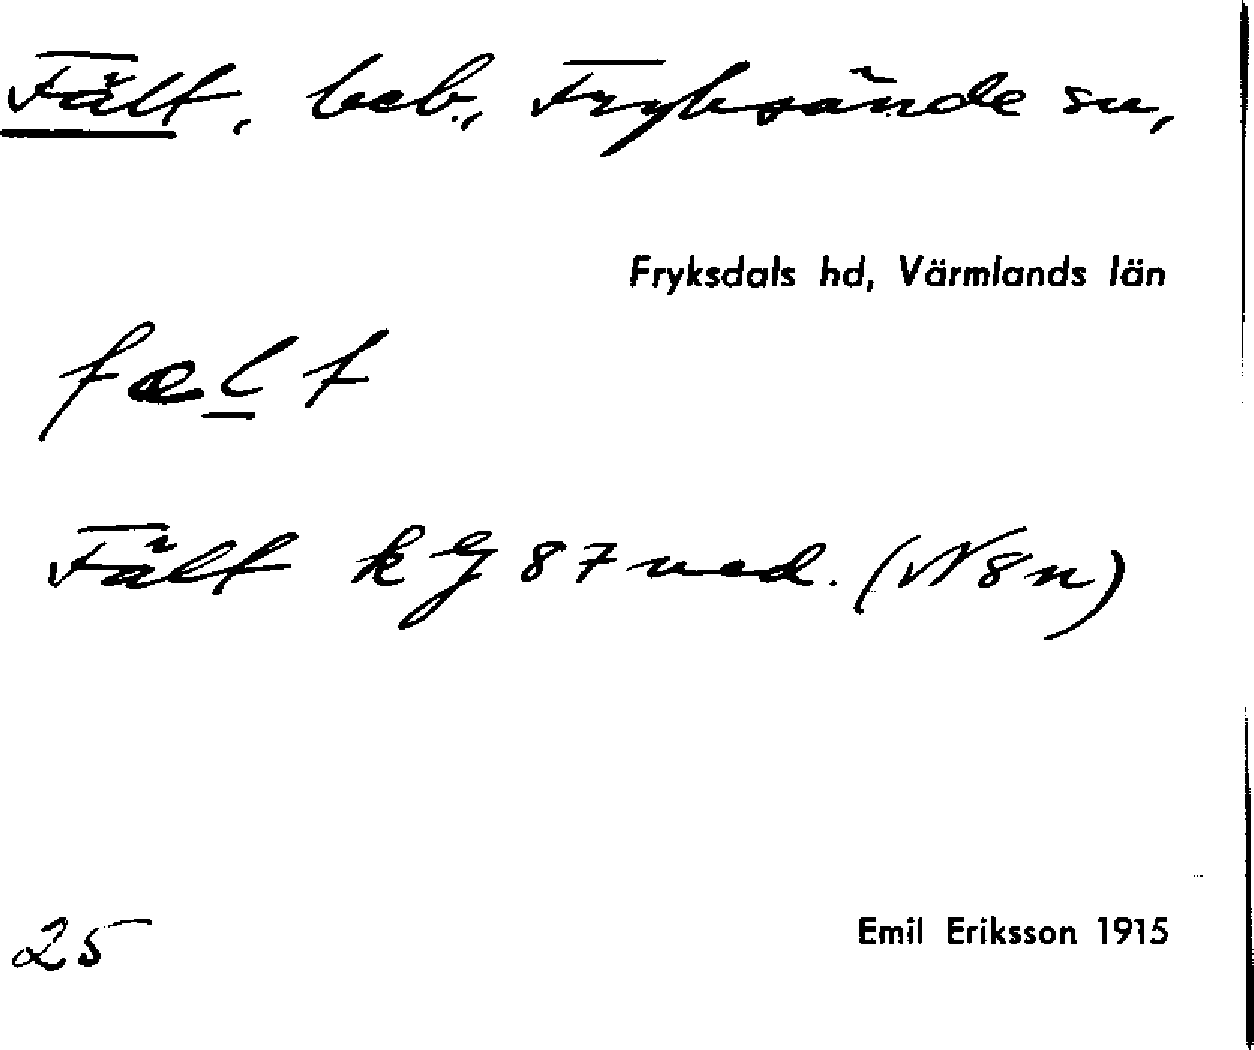 Fält, beb., Fryksände sn,
Fryksdals hd, Värmlands län
fælt
Fält k 87 ned. (N8n)
25
Emil Eriksson 1915